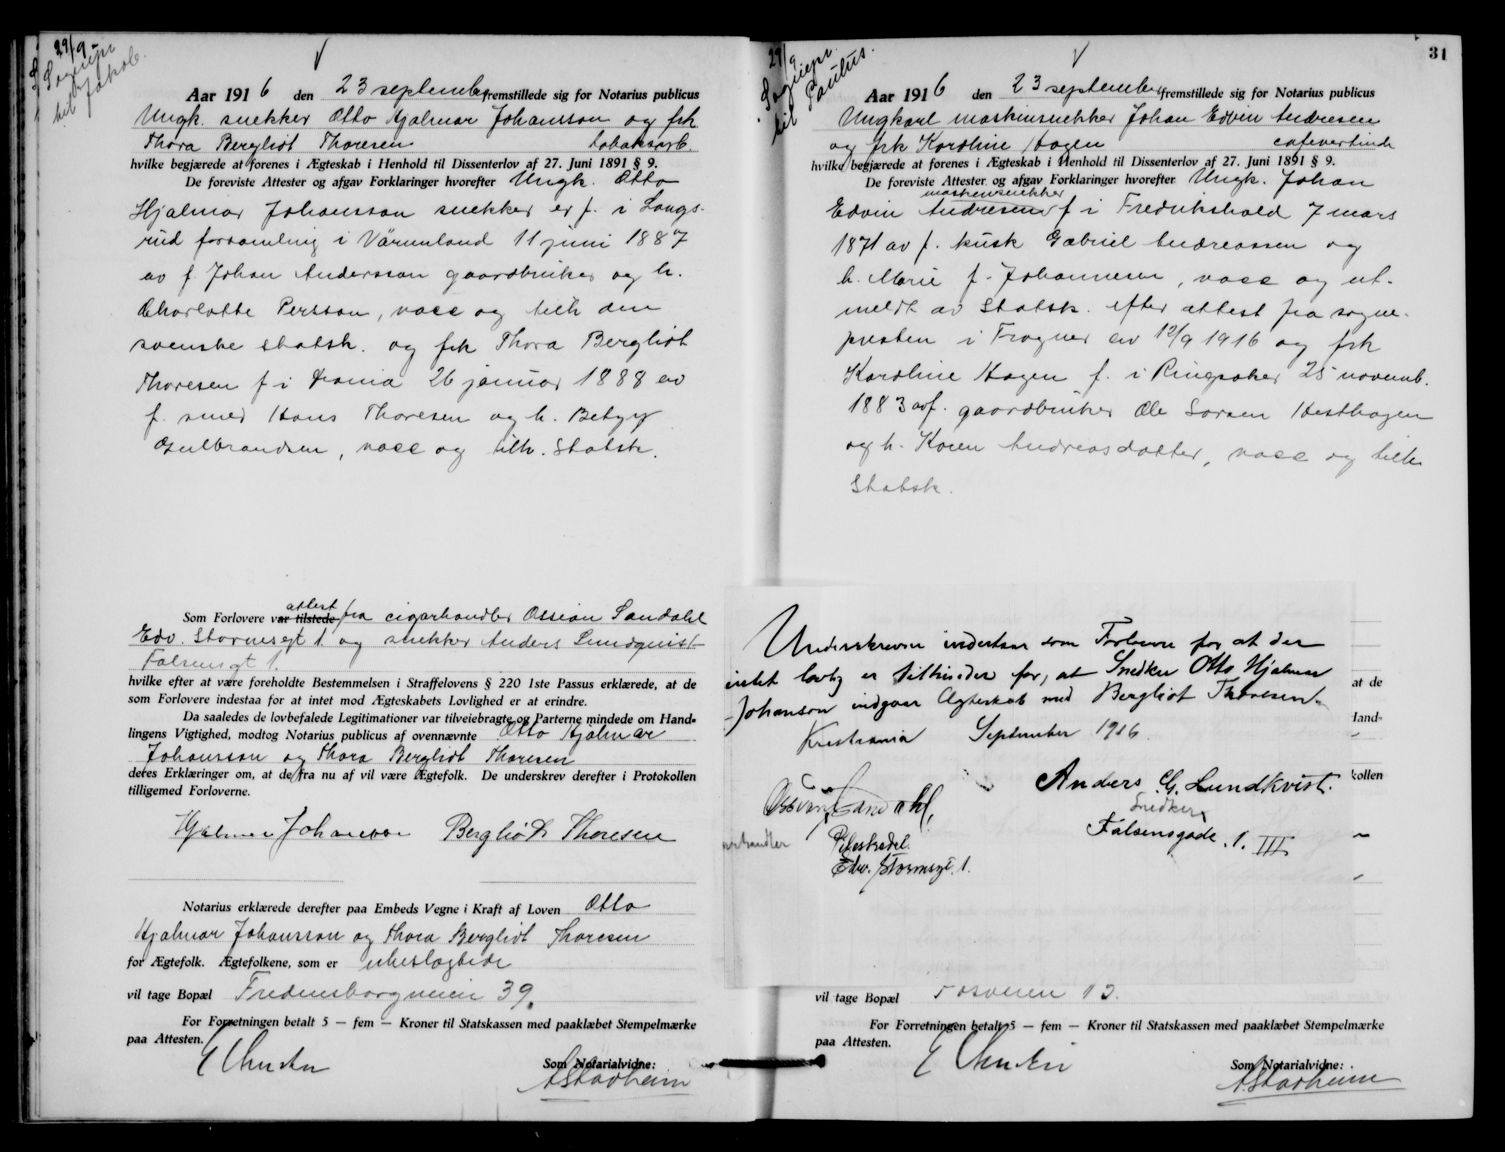 29/9
Sogнepr.
til Jakob.
Aar 1916 den 23 september fremstillede sig for Notarius publicus
Ungk. snekker Otto Hjalmar Johansson og frk
Thora Bergliot Thoresen tobaksarb.
hvilke begjærede at forenes i Ægteskab i Henhold til Dissenterlov af 27. Juni 1891 § 9.
De foreviste Attester og afgav Forklaringer hvorefter Ungk. Otto
Hjalmar Johansson snekker er f. i Langs-
rud forsamling i Värmland 11 juni 1887
av f. Johan Andersson gaardbruker og h.
Charlotte Persson, vacc og tilh den
svenske statsk. og frk Thora Bergliot
Thoresen f i Krania 26 januar 1888 av
f. smed Hans Thoresen og h. Betzy
Gulbrandsen, vacc og tilh. Statsk.
Som Forlovere var tilstede attest fra cigarhandler Ossian Sandahl
Edv. Stormsgt 1 og snekker Anders Lundquist
Falsensgt 1.
hvilke efter at være foreholdte Bestemmelsen i Straffelovens § 220 1ste Passus erklærede, at de
som Forlovere indestaa for at intet mod Ægteskabets Lovlighed er at erindre.
Da saaledes de lovbefalede Legitimationer var tilveiebragte og Parterne mindede om Hand-
lingens Vigtighed, modtog Notarius publicus af ovennævnte Otto Hjalmar
Johansson og Thora Bergliot Thoresen
deres Erklæringer om, at de fra nu af vil være Ægtefolk. De underskrev derefter i Protokollen
tilligemed Forloverne.
Hjalmar Johansson Bergliot Thoresen
Notarius erklærede derefter paa Embeds Vegne i Kraft af Loven Otto
Hjalmar Johansson og Thora Bergliot Thoresen
for Ægtefolk. Ægtefolkene, som er ubeslægtede
vil tage Bopæl Fredensborgveien 39.
For Forretningen betalt 5 — fem — Kroner til Statskassen med paaklæbet Stempelmærke
paa Attesten.
Som Notarialvidne:
AStadheim
31
29/9
Sognepr.
til Paulus.
Aar 1916 den 23 september fremstillede sig for Notarius publicus
Ungkarl maskinsnekker Johan Edvin Andresen
og frk Karoline Hagen cafevertinde
hvilke begjærede at forenes i Ægteskab i Henhold til Dissenterlov af 27. Juni 1891 § 9.
De foreviste Attester og afgav Forklaringer hvorefter Ungk. Johan
maskinsnekker
Edvin Andresen f i Fredrikshald 7 mars
1871 av f. kusk Gabriel Andreassen og
h. Marie f. Johannesen, vacc og ut-
meldt av Statsk. efter attest fra sogne-
presten i Frogner av 12/9 1916 og frk
Karoline Hagen f. i Ringsaker 25 novemb.
1883 av f. gaardbruker Ole Larsen Hesthagen
og h. Karen Andreasdatter, vacc og tilh
Statsk.
Underskrevne indestaar som Forlovere for at der
intet lovlig er tilhinder for, at Snedker Otto Hjalmar
Johanson indgaar Ægteskab med Bergliot Thoresen.
Kristiania September 1916.
Ossian Sandahl, Anders G. Lundkvist.
Snedker
Falsensgade. 1. III
Pilestredet.
Edv. Stormsgt. 1.
at de
Hand-
kollen
vil tage Bopæl
For Forretningen betalt 5 — fem — Kroner til Statskassen med paaklæbet Stempelmærke
paa Attesten.
Som Notarialvidne:
AStadheim